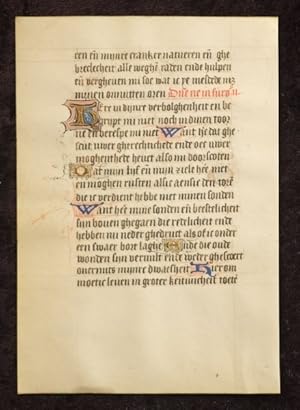 een eñ mijnre crancker natueren eñ ghe
breclecheit alse weghē raden ende hulpen
eñ vergheuen mi soe wat ic ye mesdede
minen onnutten oren Dñe ne in furor
ere in dijnre verbolghenheit en be
grupe mi niet noch in dinen toor
ne en berespe mi niet Want ghe
scut uwer gherechtichede ende oec uwer
moghenthede heuet also mi doorscoten
Dat mijn lijf eñ mijn ziele hier niet
en moghen rusten alsic aensie den torē
die ic verdient hebbe met minen sonden
Want hier mine sonden eñ brestelicheit
sijn bouen ghegaen die redelicheit ende
hebben mi neder ghedruct als of ic onder
een swaer bort laghe Ende die oude
wonden sijn veruult ende weder ghesweert
ouermits mijnre dwaesheit Hier om
moetic leuen in groter keitiuicheit